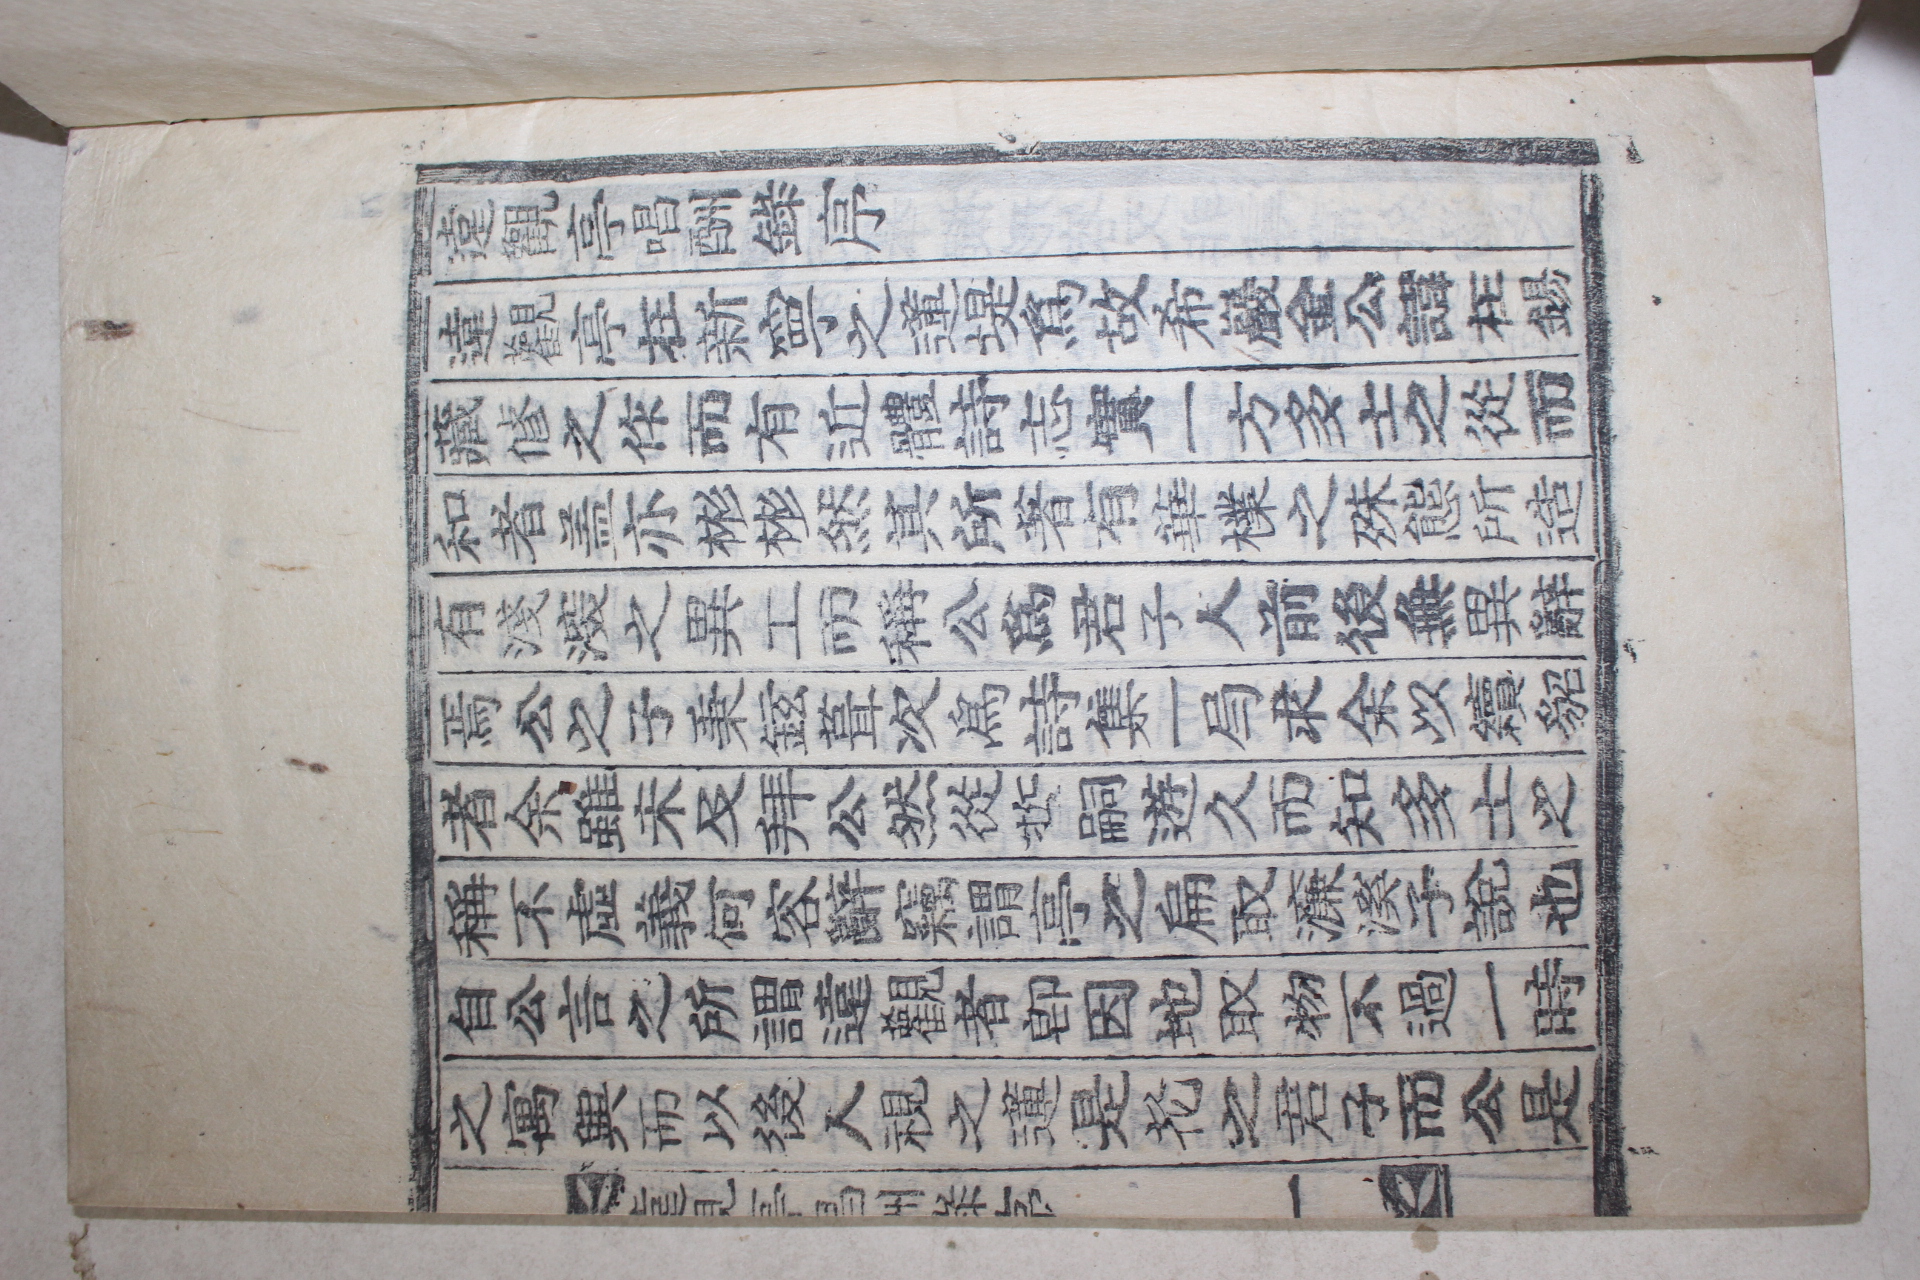 達觀亭唱酬錄序
達觀亭在新寧之蓮堤爲故希巖金公諱柱錫
藏修之作而有近體詩志實一方多士之從而
和者盖亦彬彬然其所著有華樸之殊態所造
有淺深之異工而稱公爲君子人前後無異辭
焉公之子秉鉉葺次爲詩集一弓求余以續貂
者余雖未及拜公然從哲嗣遊久而知多士之
稱不虛義何容辭竊謂亭之扁取濂溪子說也
自公言之所謂達觀者卽因地取物不過一時
之寓興而以後人視之蓮是花之君子而公是
達觀亭唱酬錄序 一